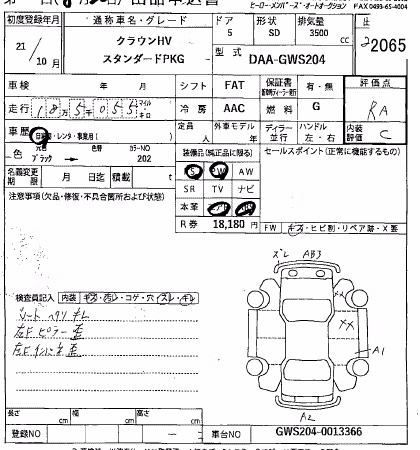 ヒーロー・メンバーズ・オートオークション FAX 0493-65-4004
初度登録年月 通称車名・グレード ドア 形状 排気量
21/10月 クラウンHV スタンダードPKG 5 SD 3500 cc 2065
型式 DAA-GWS204
車検 年 月 シフト FAT 保証書 有・無 評価点
走行 185055 マイル キロ 冷房 AAC 燃料 G RA
車歴 自家用・レンタ・事業用( ) 定員 人 外車モデル 年 ディーラー 並行 ハンドル 左・右 内装評価 C
色 元色 色替 カラーNO
ブラック → 202
装備品(純正品に限る) セールスポイント(正常に機能するもの)
S PW AW
名義変更期限 月 日迄 積載 t SR TV ナビ
注意事項(欠品・修復・不具合箇所および状態) 本革
R券 18,180 円 FW キズ・ヒビ割・リペア跡・X要
ズレ AB3
検査員記入 内装 キズ・汚レ・コゲ・穴・スレ・キレ
シートヘタリ キレ XX
左Fピラー歪 XX
左Fインナー歪 A1
A2
長さ cm 幅 cm 高さ cm
登録NO 車台NO GWS204-0013366